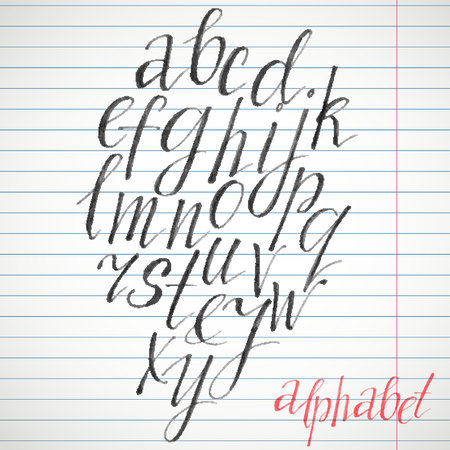 abcd
efghijk
lmnopq
rstuv
eyw.
xy
alphabet